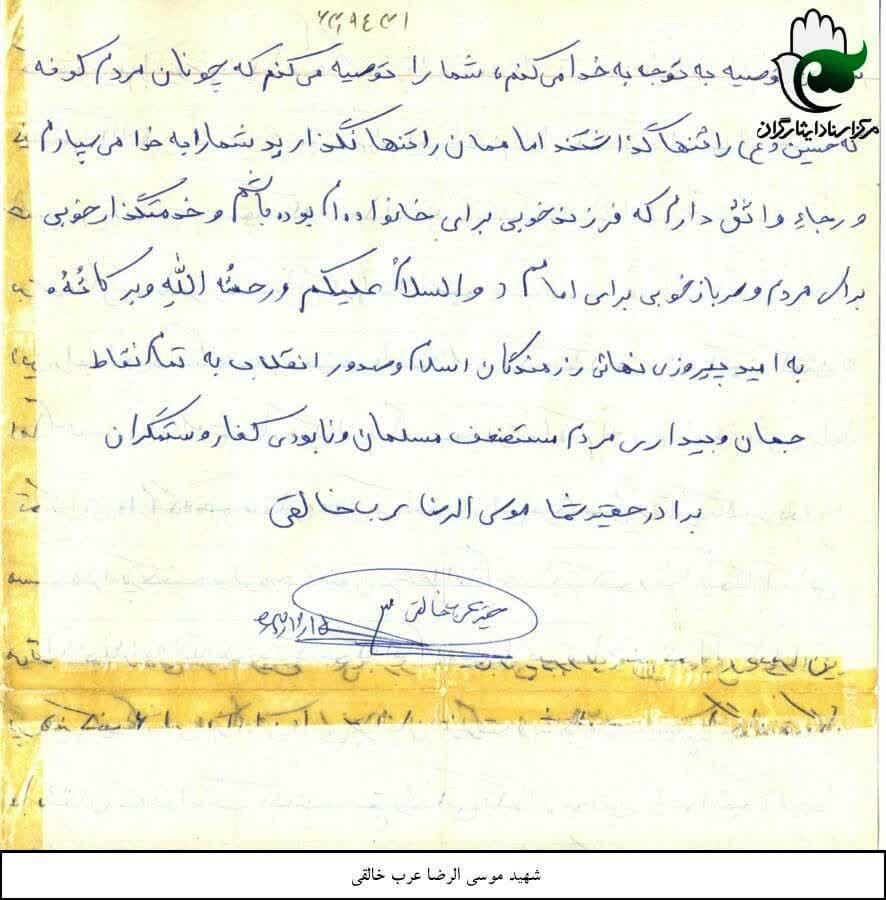 ۶۳۰۹۴۳۱
توصیه به توجه به خدا می‌کنم، شما را توصیه می‌کنم که چونان مردم کوفه
که حسین (ع) را تنها گذاشتند امامتان را تنها نگذارید شما را به خدا می‌سپارم
و رجاء واثق دارم که فرزند خوبی برای خانواده‌ام بوده باشم و خدمتگذار خوبی
برای مردم و سرباز خوبی برای امام و السلامُ علیکم و رحمتُه اللهِ و برکاتُهُ
به امید پیروزی نهائی رزمندگان اسلام و صدور انقلاب به تمام نقاط
جهان و بیداری مردم مستضعف مسلمان و نابودی کفار و ستمگران
برادر حقیر شما موسی الرضا عرب خالقی
حقیر عرب خالقی
مرکز اسناد ایثارگران
شهید موسی الرضا عرب خالقی